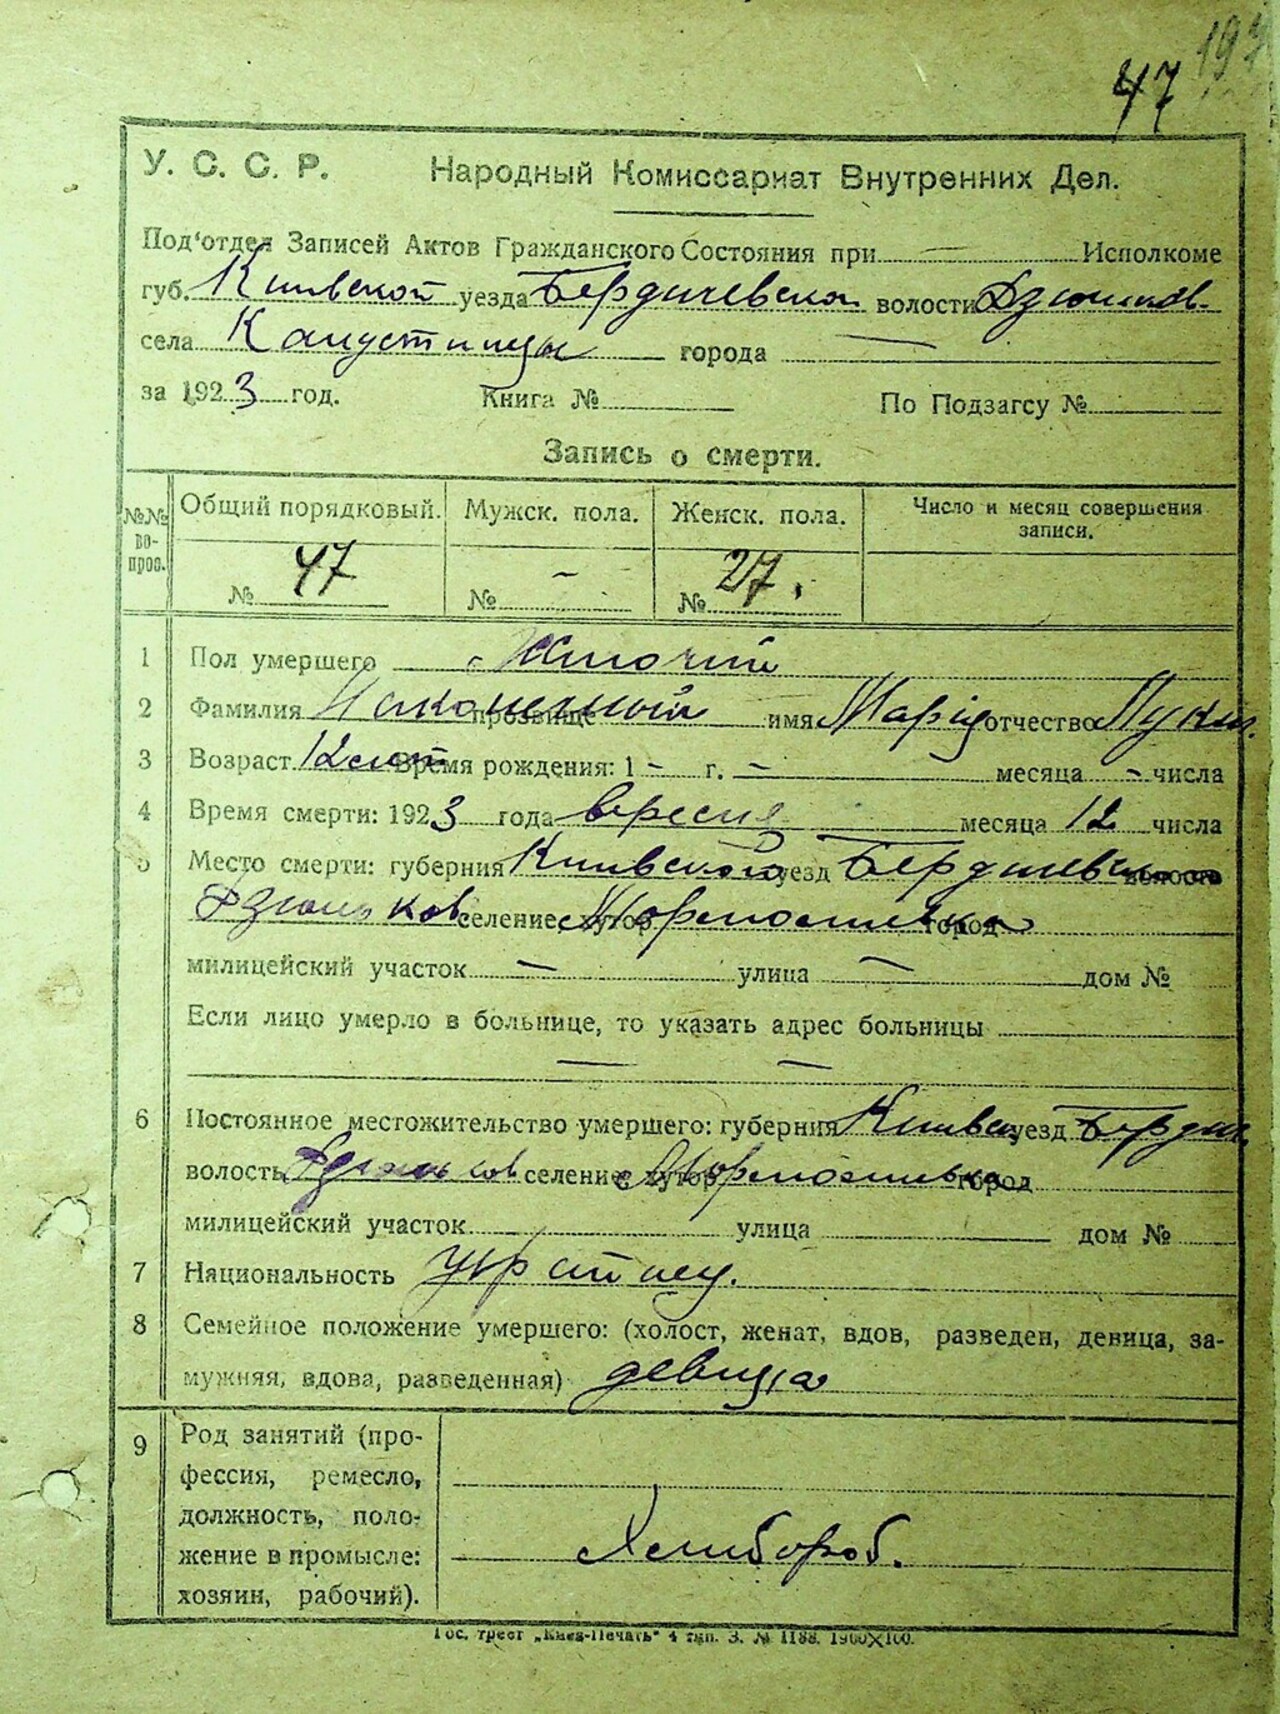 47
У. С. С. Р. Народный Комиссариат Внутренних Дел.
Под‘отдел Записей Актов Гражданского Состояния при — Исполкоме
губ. Киивской уезда Бердичевской волости Дзюньков.
села Капустинцы города —
за 1923 год. Книга № По Подзагсу №
Запись о смерти.
№№ во- прос. Общий порядковый. Мужск. пола. Женск. пола. Число и месяц совершения записи.
№ 47 № - № 27.
1 Пол умершего Жиночий
2 Фамилия прозвище имя Марія отчество Луки.
3 Возраст 12 лет Время рождения: 1 - г. - месяца - числа
4 Время смерти: 1923 года вересня месяца 12 числа
5 Место смерти: губерния Киивской уезд Бердичев волость
Дзюньков селение, хутор город
милицейский участок — улица — дом №
Если лицо умерло в больнице, то указать адрес больницы
— —
6 Постоянное местожительство умершего: губерния Киивск уезд Бердич.
волость Дзюньков селение хутор город
милицейский участок улица дом №
7 Национальность
8 Семейное положение умершего: (холост, женат, вдов, разведен, девица, за-
мужняя, вдова, разведенная) девица
9 Род занятий (про-
фессия, ремесло,
должность, поло-
жение в промысле:
хозяин, рабочий).
Хлибороб.
Гос. трест „Киев-Печать“ 4 тип. З. № 1188. 1900×100.